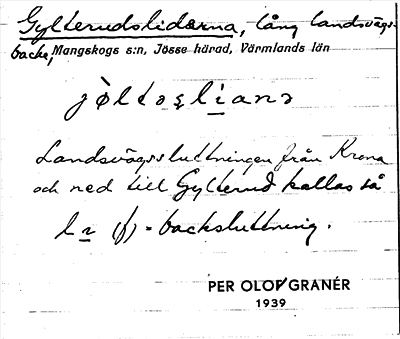 Gylterudslidarna, lång landsvägs-
backe, Mangskogs s:n, Jösse härad, Värmlands län
Landsvägssluttningen från Krona
och ned till Gylterud kallas så
(f) = backsluttning.
PER OLOF GRANÉR
1939